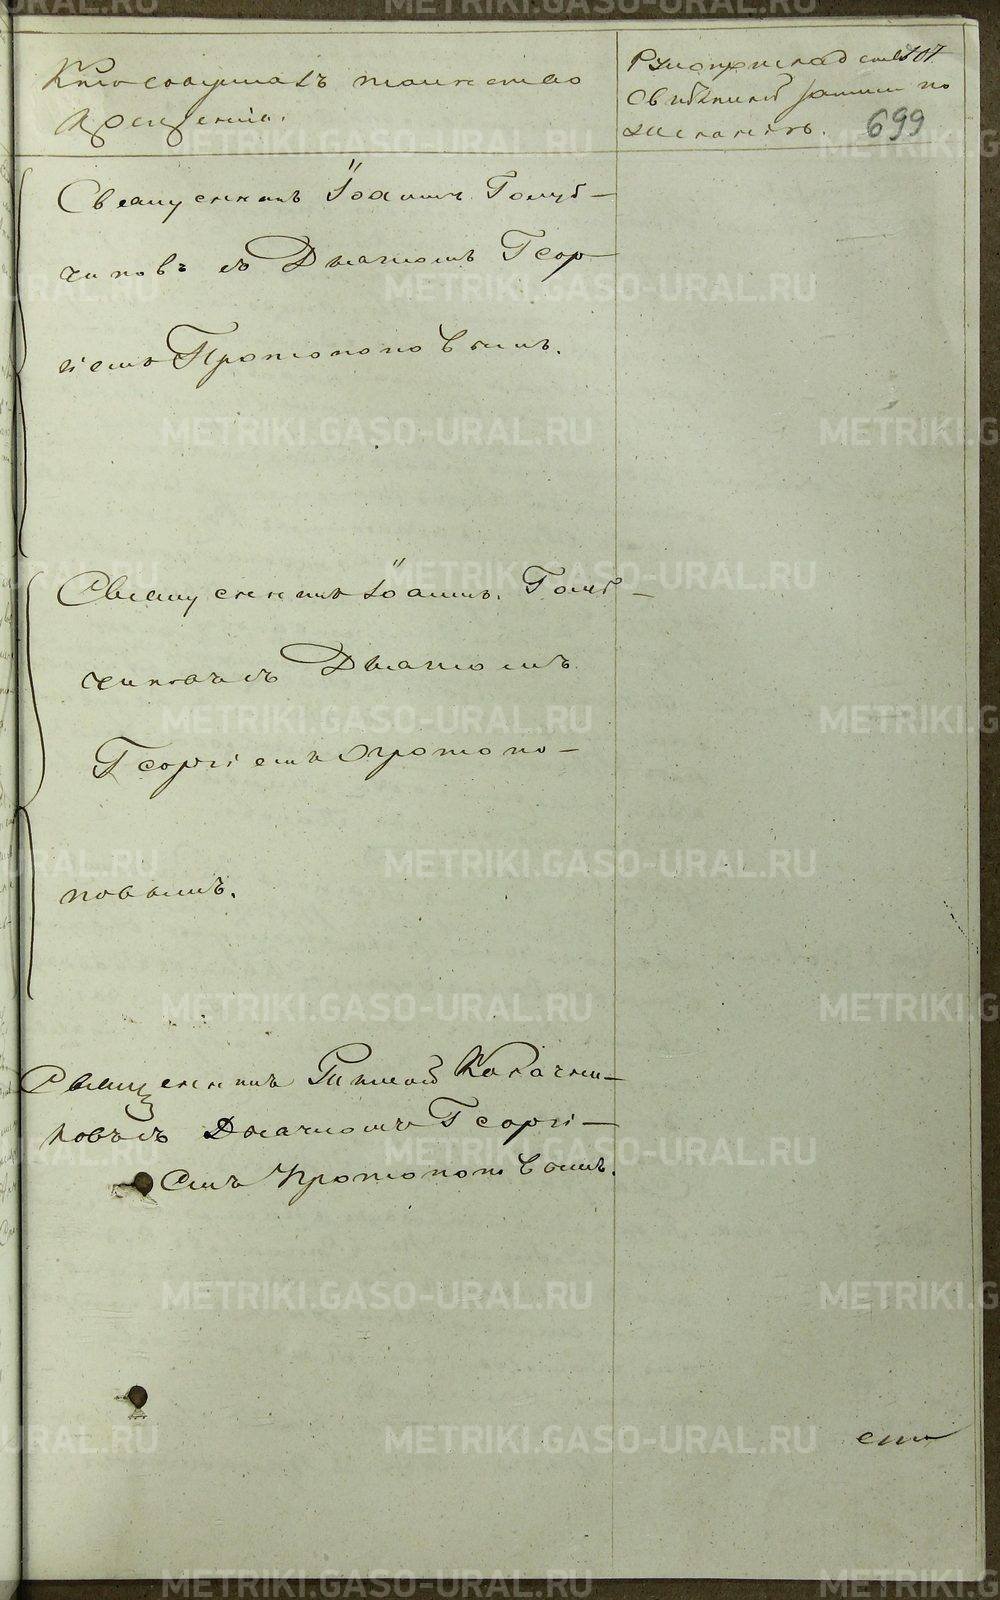 Кто совершалъ таинство
крещенія.
Рукоприкладство 107
свидѣтелей записи по
желанію. 699
Священникъ Іоаннъ Голуб-
чиковъ съ Діакономъ Геор-
гіемъ Протопоповымъ.
Священникъ Іоаннъ Голуб-
чиковъ съ Діакономъ
Георгіемъ Протопо-
повымъ.
Священникъ Калачни-
ковъ съ Діакономъ Георгі-
емъ Протопоповымъ.
METRIKI.GASO-URAL.RU